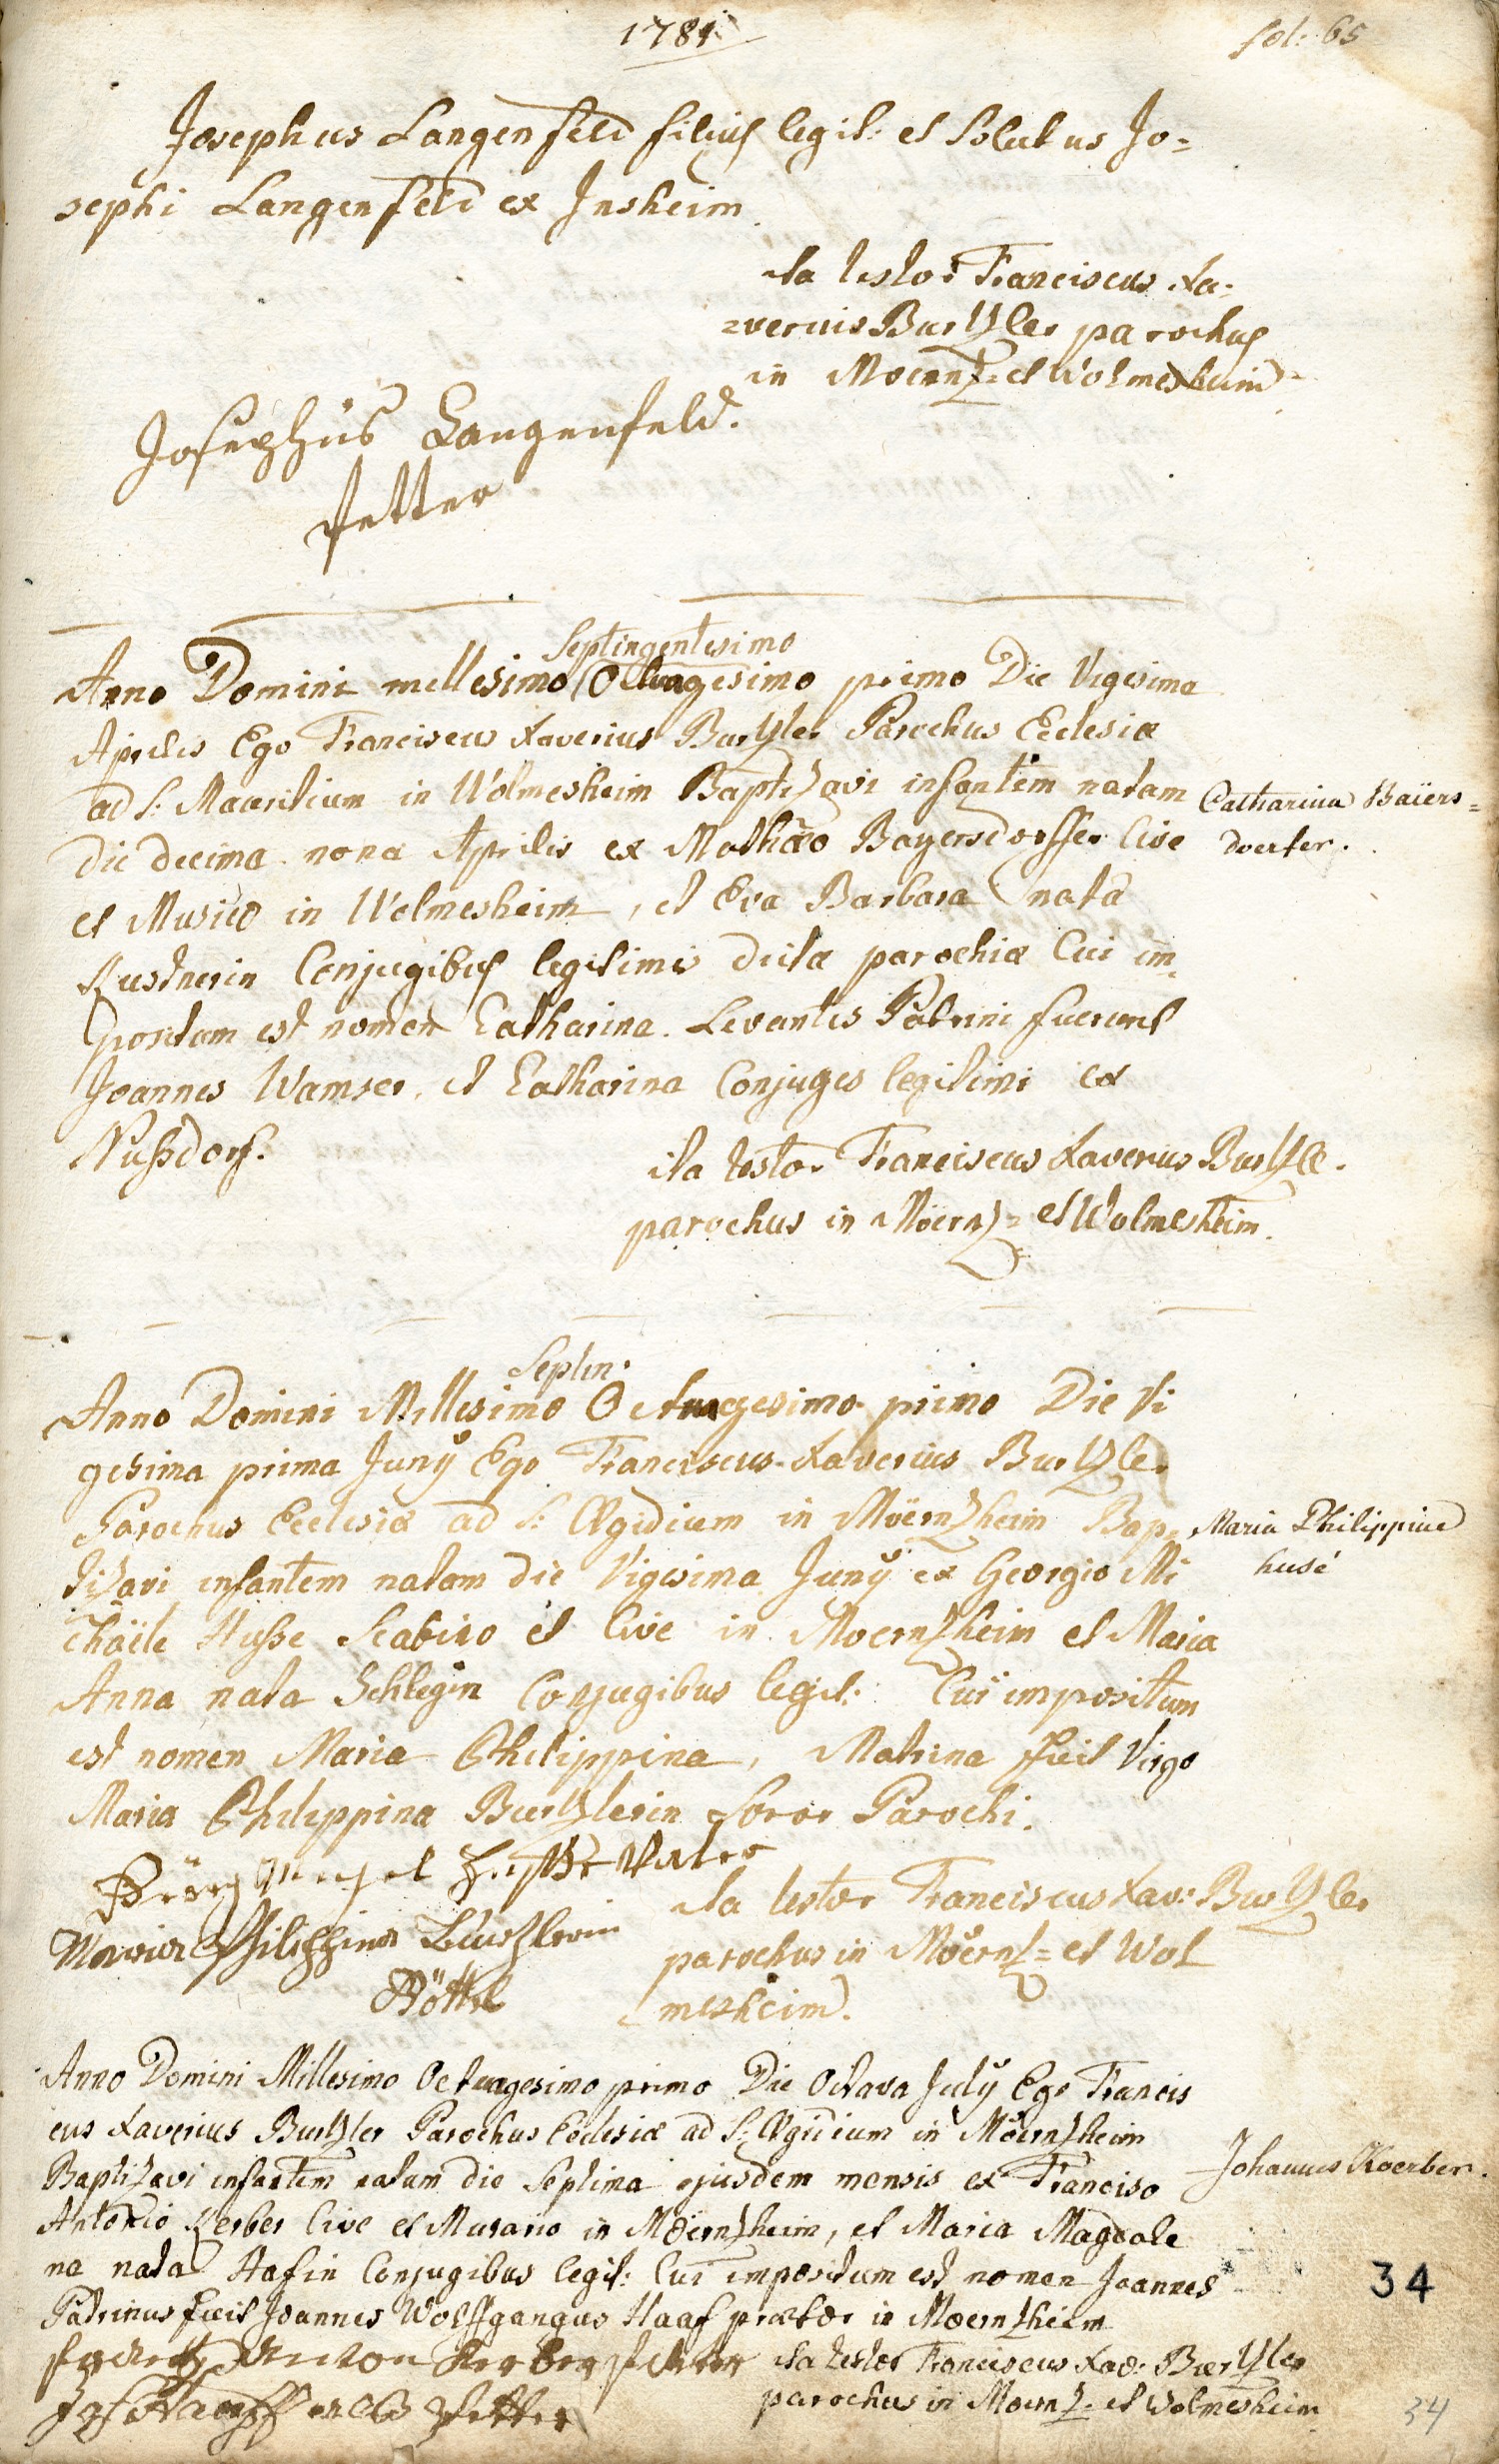 1781
fol: 65
Josephus Langenfeld filius legit: et Solutus Jo=
sephi Langenfeld ex Insheim
ita testor Franciscus Xa=
=verius Burtzler parochus
in Moernz= et Wolmesheim
Josephus Langenfeld.
Petter
Septingentesimo
Anno Domini millesimo Octuagesimo primo Die Vigesima
Aprilis Ego Franciscus Xaverius Burtzler Parochus Ecclesiæ
ad S: Mauritium in Wolmesheim Baptizavi infantem natam
Catharina Baïers=
doerfer.
die decima nona Aprilis ex Mathæo Bayersdorffer Cive
et Musico in Wolmesheim, et Eva Barbara nata
Kustnerin Conjugibus legitimis dictæ parochiæ Cui im=
positum est nomen Catharina. Levantes Patrini fuerunt
Joannes Wamser, et Catharina Conjuges legitimi ex
Nußdorf.
ita testor Franciscus Xaverius Burtzle.
parochus in Moernz= et Wolmesheim.
Septin:
Anno Domini Millesimo Octuagesimo primo Die Vi
gesima prima Junÿ Ego Franciscus Xaverius Burtzler
Parochus Ecclesiæ ad S: Ægidium in Moërnzheim Bap=
Maria Philippine
husé
tizavi infantem natam die Vigesima Junÿ ex Georgio Mi
chaële Huße Scabino et Cive in Moernzheim et Maria
Anna nata Schlegin Conjugibus legit: Cui impositum
est nomen Maria Philippina, Matrina fuit Virgo
Maria Philippina Burtzlerin Soror Parochi.
Vater
Maria Philippina Burtzlerin
Göttel
ita testor Franciscus Xav: Burtzler
parochus in Moernz= et Wol
mesheim.
Anno Domini Millesimo Octuagesimo primo Die Octava Julÿ Ego Francis
cus Xaverius Burtzler Parochus Ecclesiæ ad S: Ægidium in Moernzheim
Baptizavi infantem natum die Septima ejusdem mensis ex Franciso
Johannes Koerber.
Antonio Kerber Cive et Murario in Moernzheim, et Maria Magdale
na nata Hafin Conjugibus legit: Cui impositum est nomen Joannes
Patrinus fuit Joannes Wolffgangus Haaf prætor in Moernzheim
Anton Kerber
Petter
ita testor Franciscus Xav: Burtzler
parochus in Moernz= et Wolmesheim
34
34